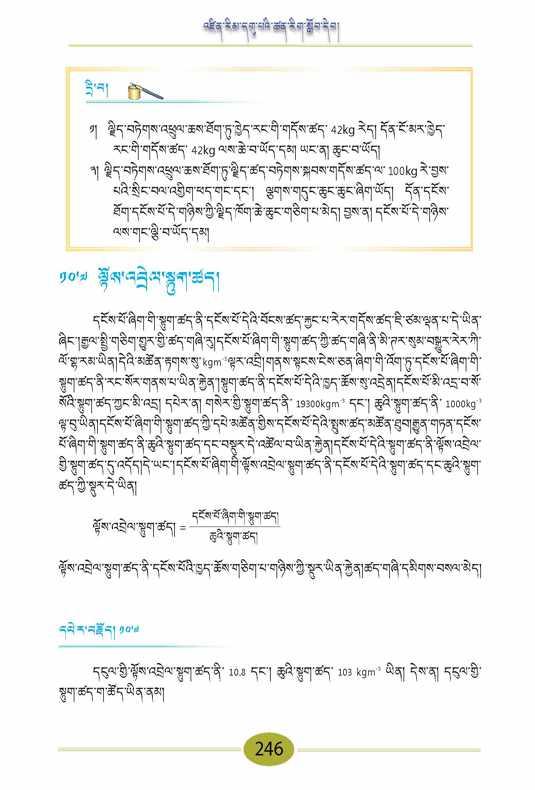 འཛིན་རིམ་དགུ་པའི་ཚན་རིག་སློབ་དེབ།
དྲི་བ།
༡། ལྗིད་བཏེགས་འཕྲུལ་ཆས་ཐོག་ཏུ་ཁྱེད་རང་གི་གདོས་ཚད་ 42kg རེད། དོན་ངོ་མར་ཁྱེད་
རང་གི་གདོས་ཚད་ 42kg ལས་ཆེ་བ་ཡོད་དམ། ཡང་ན། ཆུང་བ་ཡོད།
༢། ལྗིད་བཏེགས་འཕྲུལ་ཆས་ཐོག་ཏུ་ལྗིད་ཚད་བཏེགས་སྐབས་གདོས་ཚད་ལ་ 100kg རེ་བྱས་
པའི་སྲིང་བལ་འགྱིག་ཕད་གང་དང་། ལྕགས་གདུང་ཆུང་ཆུང་ཞིག་ཡོད། དོན་དངོས་
ཐོག་དངོས་པོ་དེ་གཉིས་ཀྱི་ལྗིད་ཁོག་ཆེ་ཆུང་གཅིག་པ་མེད། བྱས་ན། དངོས་པོ་དེ་གཉིས་
ལས་གང་ལྕི་བ་ཡོད་དམ།
༡༠་༧ ལྟོས་འབྲེལ་སྟུག་ཚད།
དངོས་པོ་ཞིག་གི་སྟུག་ཚད་ནི་དངོས་པོ་དེའི་བོངས་ཚད་རྐྱང་པ་རེར་གདོས་ཚད་ཇི་ཙམ་ལྡན་པ་དེ་ཡིན་
ཞིང་།རྒྱལ་སྤྱི་གཅིག་གྱུར་གྱི་ཚད་གཞི་རུ།དངོས་པོ་ཞིག་གི་སྟུག་ཚད་ཀྱི་ཚད་གཞི་ནི་མི་ཊར་སུམ་བསྒྱུར་རེར་ཀི་
ལོ་གྷ་རམ་ཡིན།དེའི་མཚོན་རྟགས་སུ་kgm⁻³ལྟར་འབྲི།གནས་སྟངས་ངེས་ཅན་ཞིག་གི་འོག་ཏུ་དངོས་པོ་ཞིག་གི་
སྟུག་ཚད་ནི་རང་སོར་གནས་པ་ཡིན་རྐྱེན།སྟུག་ཚད་ནི་དངོས་པོ་དེའི་ཁྱད་ཆོས་སུ་འདྲེན།དངོས་པོ་མི་འདྲ་བ་སོ་
སོའི་སྟུག་ཚད་ཀྱང་མི་འདྲ། དཔེར་ན། གསེར་གྱི་སྟུག་ཚད་ནི་ 19300kgm⁻³ དང་། ཆུའི་སྟུག་ཚད་ནི་ 1000kg⁻³
ལྟ་བུ་ཡིན།དངོས་པོ་ཞིག་གི་སྟུག་ཚད་ཀྱི་དཔེ་མཚོན་གྱིས་དངོས་པོ་དེའི་སྤུས་ཚད་མཚོན་ཐུབ།རྒྱུན་གཏན་དངོས་
པོ་ཞིག་གི་སྟུག་ཚད་ནི་ཆུའི་སྟུག་ཚད་དང་བསྡུར་དེ་འཚོལ་བ་ཡིན་རྐྱེན།དངོས་པོ་དེའི་སྟུག་ཚད་ནི་ལྟོས་འབྲེལ་
གྱི་སྟུག་ཚད་དུ་འདོད།དེ་ཡང་།དངོས་པོ་ཞིག་གི་ལྟོས་འབྲེལ་སྟུག་ཚད་ནི་དངོས་པོ་དེའི་སྟུག་ཚད་དང་ཆུའི་སྟུག་
ཚད་ཀྱི་སྡུར་དེ་ཡིན།
ལྟོས་འབྲེལ་སྟུག་ཚད། = དངོས་པོ་ཞིག་གི་སྟུག་ཚད།
ཆུའི་སྟུག་ཚད།
ལྟོས་འབྲེལ་སྟུག་ཚད་ནི་དངོས་པོའི་ཁྱད་ཆོས་གཅིག་པ་གཉིས་ཀྱི་སྡུར་ཡིན་རྐྱེན།ཚད་གཞི་དམིགས་བསལ་མེད།
དཔེར་བརྗོད། ༡༠་༧
དངུལ་གྱི་ལྟོས་འབྲེལ་སྟུག་ཚད་ནི་ 10.8 དང་། ཆུའི་སྟུག་ཚད་ 103 kgm⁻³ ཡིན། དེས་ན། དངུལ་གྱི་
སྟུག་ཚད་ག་ཚོད་ཡིན་ནམ།
246